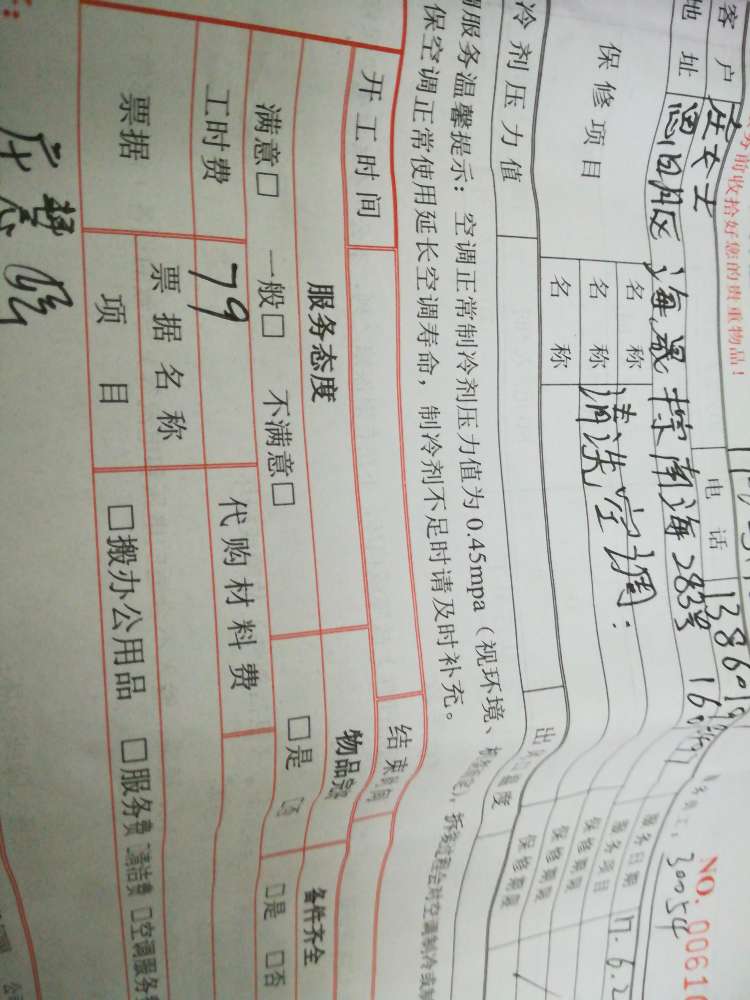 务前收拾好您的贵重物品！
NO. 00610
30054
客户 庄女士 电话
地址 思明区 海晟撑南海283号
服务日期 17.6.2
保修项目 名称 服务项目
名称 清洗空调： 保修期限
名称 保修期限
冷剂压力值
服务温馨提示：空调正常制冷剂压力值为0.45mpa（视环境、
保空调正常使用延长空调寿命，制冷剂不足时请及时补充。
开工时间 结束
服务态度 物品 备件齐全
满意□ 一般□ 不满意□ □是 □是 □否
工时费 79 代购材料费
票据 票据名称
项目 □搬办公用品 □服务费 □清洁费 □空调服务